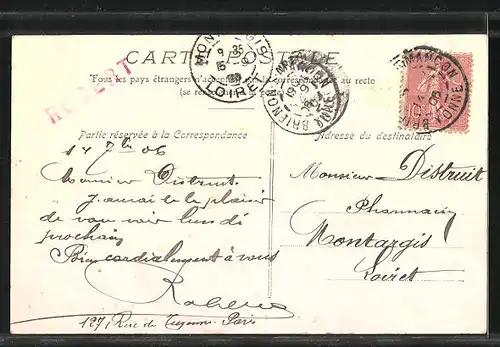 CARTE POSTALE
Tous les pays étrangers n'acceptent pas la correspondance au recto
(se renseigner
ROBERT
MONTARGIS
9 35
15 9
LOIRET
BRIENON
YONNE
Partie réservée à la Correspondance
Adresse du destinataire
14 7bre 06
Monsieur Distruit
J'aurai le plaisir
de vous voir lundi
prochain
Bien cordialement à vous
127, Rue de Paris
Monsieur Distruit
Pharmacien
Montargis
Loiret